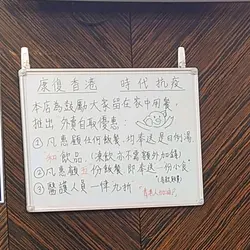 康復香港 時代抗疫
本店為鼓勵大家留在家中用餐，
推出 外賣自取優惠：
① 凡惠顧任何飯餐，均奉送是日例湯
飲品（凍飲亦不需額外加錢）
② 凡惠顧 份飯餐 即奉送一份小食
③ 醫護人員一律九折